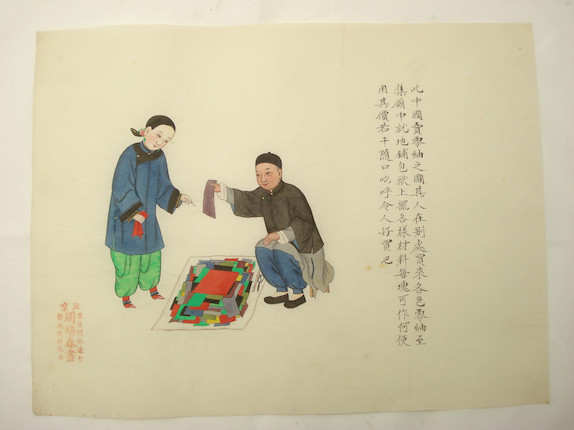 此中國賣零紬之圖其人在别處買來各色零紬至
集廟中就地鋪包袱上擺各樣材料每塊可作何使
用其價若干隨口吆呼令人好買也
周培春畫